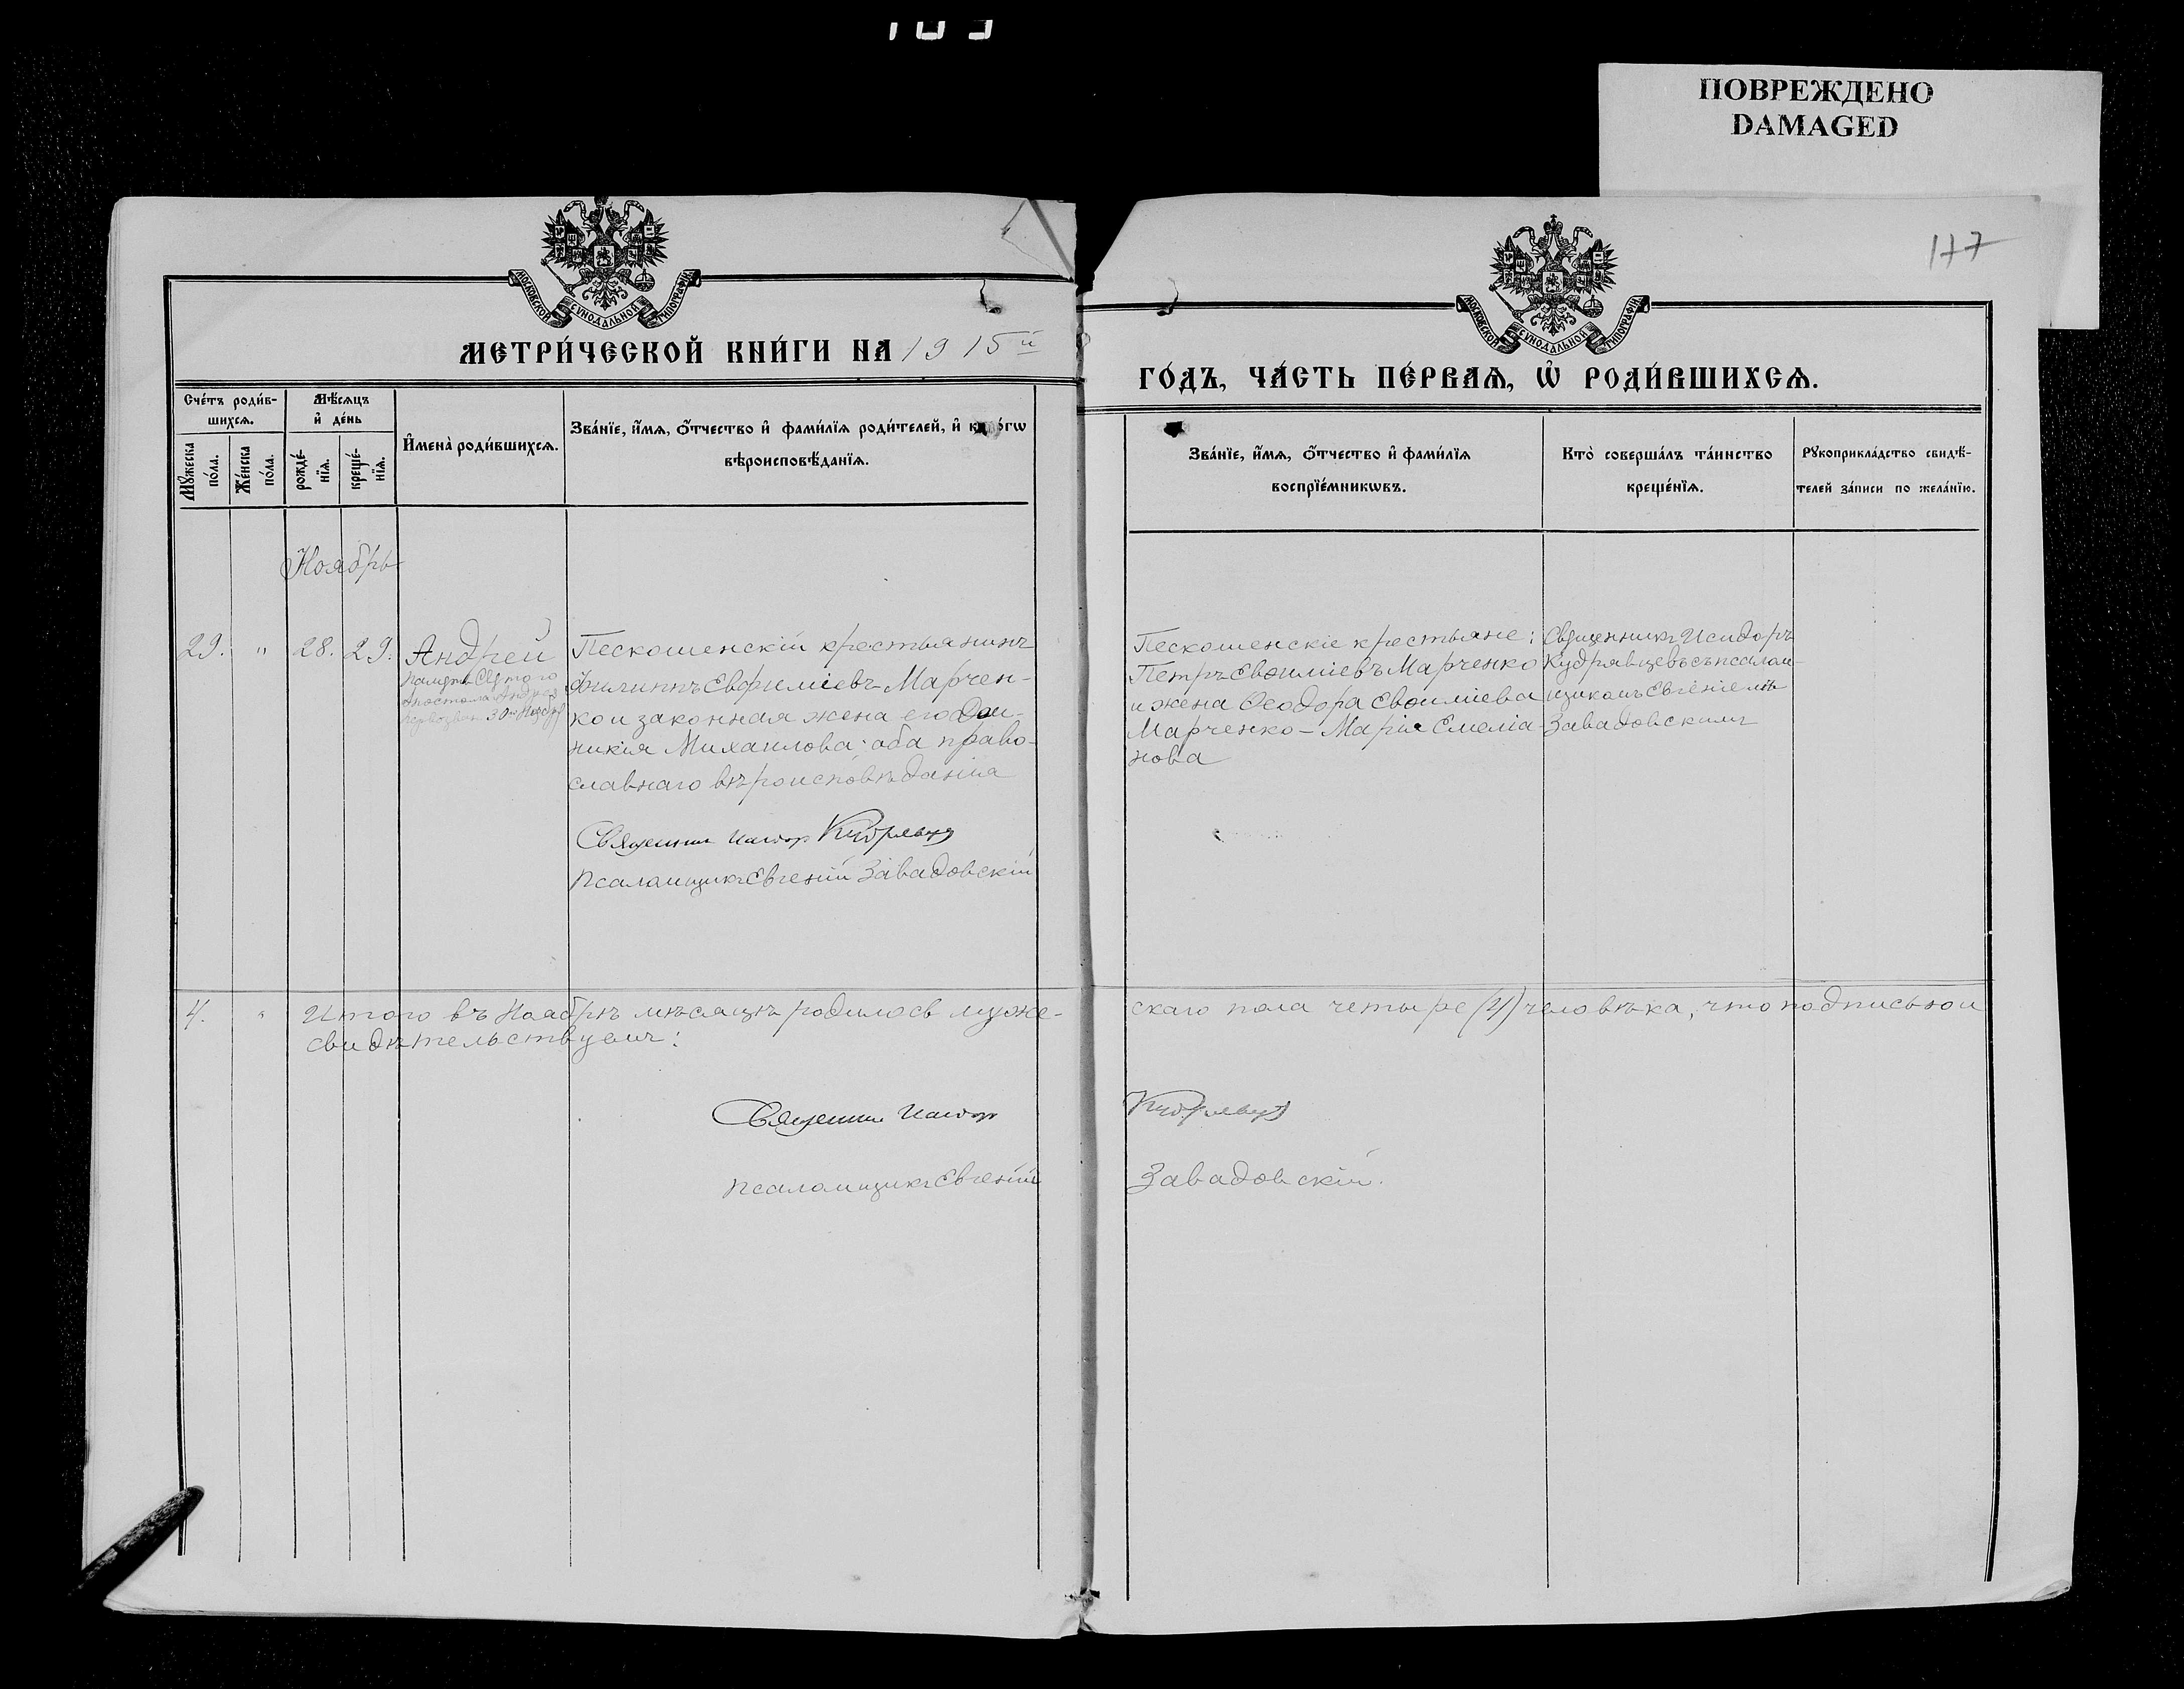 ПОВРЕЖДЕНО
DAMAGED
117
МОСКОВСКОЙ СѴНОДАЛЬНОЙ ТИПОГРАФІИ
МОСКОВСКОЙ СѴНОДАЛЬНОЙ ТИПОГРАФІИ
МЕТРИ́ЧЕСКОЙ КНИ́ГИ НА 1915й
ГО́ДЪ, ЧА́СТЬ ПЕ́РВАѦ, Ѡ҆ РОДИ́ВШИХСѦ.
Сче́тъ роди́в-
шихсѧ.
Мꙋ́жеска
по́ла.
Же́нска
по́ла.
Мѣ́сѧцъ
и҆ де́нь
рожде́-
нїѧ.
креще́-
нїѧ.
И҆мена̀ роди́вшихсѧ.
Зва́нїе, и҆́мѧ, ѻ҆́тчество и҆ фами́лїѧ роди́телей, и҆ како́гѡ
вѣроисповѣ́данїѧ.
Зва́нїе, и҆́мѧ, ѻ҆́тчество и҆ фами́лїѧ
воспрїе́мникѡвъ.
Кто̀ соверша́лъ та́инство
креще́нїѧ.
Рꙋкоприкла́дство свидѣ́-
телей за́писи по жела́нїю.
Ноябрь
29. " 28. 29.
Андрей
Память Святого
Апостола Андрея
первозван 30го Ноября
Пескошенскій крестьянинъ
Филиппъ Евфиміевъ Марчен-
ко и законная жена его Дом-
никія Михаилова: оба право-
славнаго вѣроисповѣданія
Священник Исидор Кудрявцев
Псаломщикъ Евгеній Завадовскій
Пескошенскіе крестьяне:
Петръ Евѳиміевъ Марченко
и жена Ѳеодора Евѳиміева
Марченко – Марія Емеліа-
нова
Священникъ Исидоръ
Кудрявцевъ съ псалом-
щикомъ Евгеніемъ
Завадовскимъ
4. " Итого въ Ноябрѣ мѣсяцѣ родилось муже-
скаго пола четыре (4) человѣка, что подписью и
свидѣтельствуемъ:
Священник Исидор Кудрявцев
Псаломщикъ Евгеній Завадовскій.